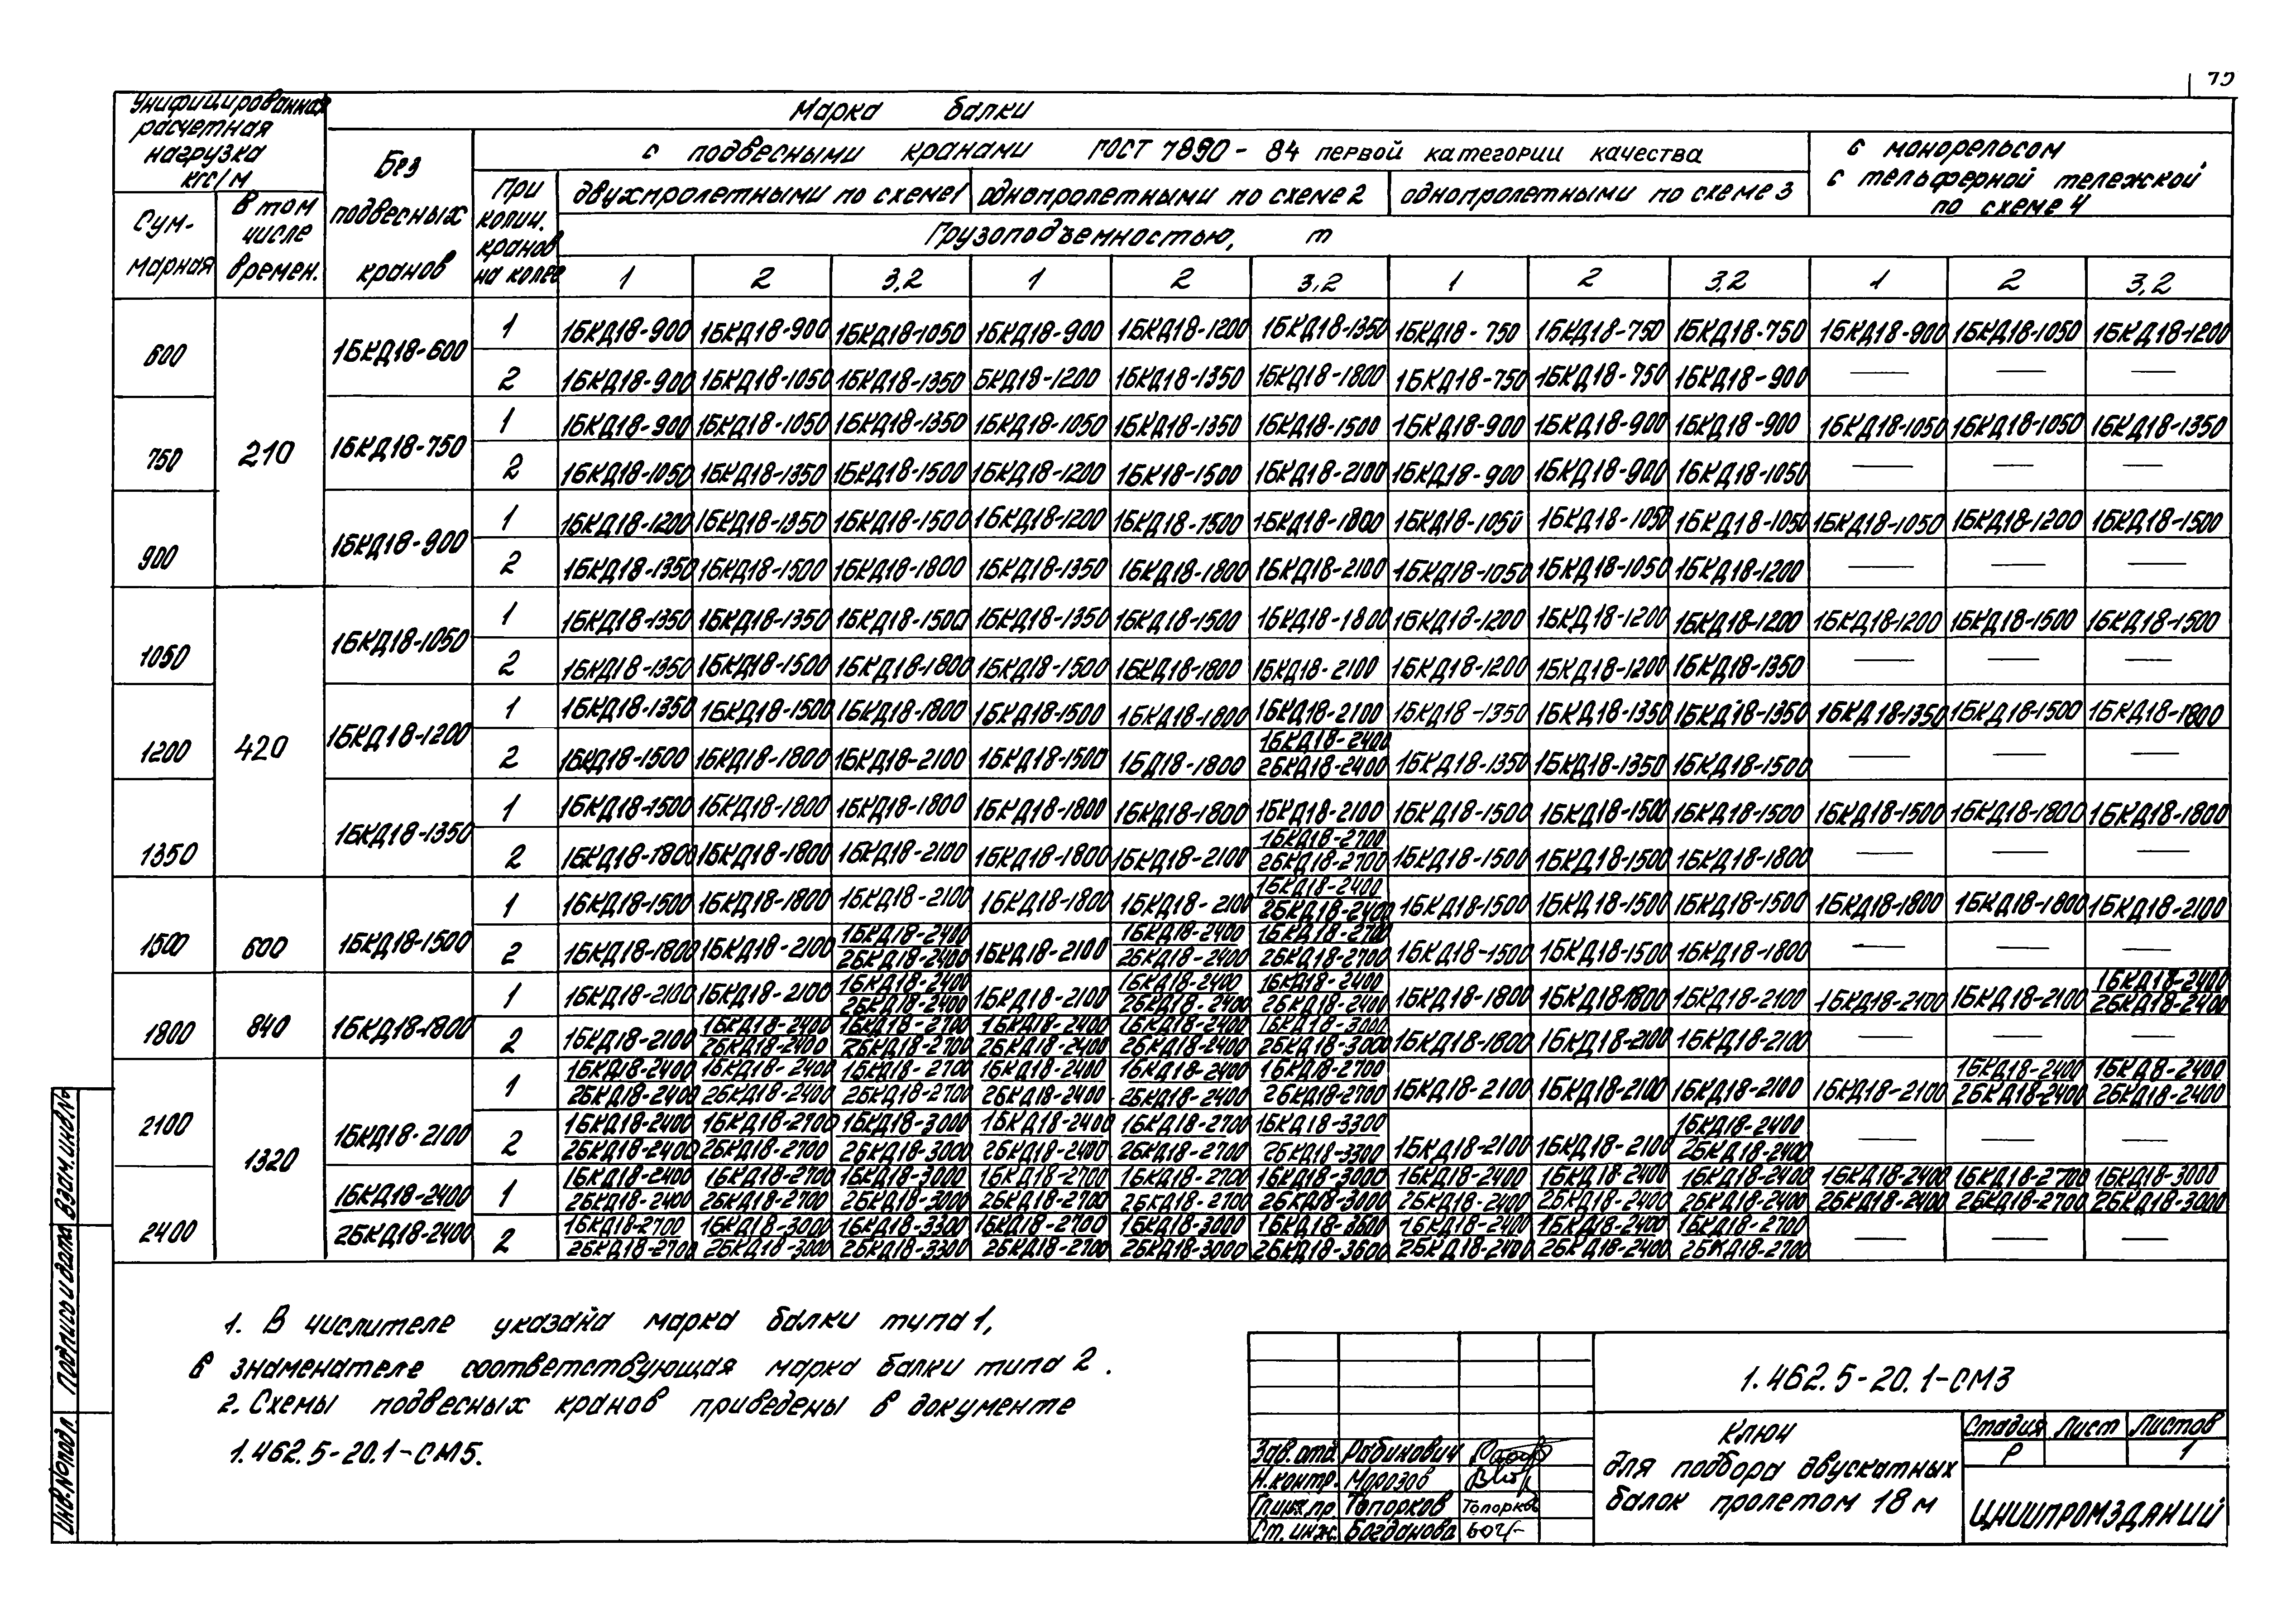 Унифицированная
расчетная
нагрузка
кгс/м
Марка балки
Без
подвесных
кранов
с подвесными кранами ГОСТ 7890-84 первой категории качества
с монорельсом
с тельферной тележкой
по схеме 4
Сум-
марная
В том
числе
времен.
При
колич.
кранов
на колее
двухпролетными по схеме 1 однопролетными по схеме 2 однопролетными по схеме 3
Грузоподъемностью, т
1 2 3,2 1 2 3,2 1 2 3,2 1 2 3,2
600 210 1БКД18-600 1 1БКД18-900 1БКД18-900 1БКД18-1050 1БКД18-900 1БКД18-1200 1БКД18-1350 1БКД18-750 1БКД18-750 1БКД18-750 1БКД18-900 1БКД18-1050 1БКД18-1200
2 1БКД18-900 1БКД18-1050 1БКД18-1350 БКД18-1200 1БКД18-1350 1БКД18-1800 1БКД18-750 1БКД18-750 1БКД18-900 — — —
750 1БКД18-750 1 1БКД18-900 1БКД18-1050 1БКД18-1350 1БКД18-1050 1БКД18-1350 1БКД18-1500 1БКД18-900 1БКД18-900 1БКД18-900 1БКД18-1050 1БКД18-1050 1БКД18-1350
2 1БКД18-1050 1БКД18-1350 1БКД18-1500 1БКД18-1200 1БК18-1500 1БКД18-2100 1БКД18-900 1БКД18-900 1БКД18-1050 — — —
900 1БКД18-900 1 1БКД18-1200 1БКД18-1350 1БКД18-1500 1БКД18-1200 1БКД18-1500 1БКД18-1800 1БКД18-1050 1БКД18-1050 1БКД18-1050 1БКД18-1050 1БКД18-1200 1БКД18-1500
2 1БКД18-1350 1БКД18-1500 1БКД18-1800 1БКД18-1350 1БКД18-1800 1БКД18-2100 1БКД18-1050 1БКД18-1050 1БКД18-1200 — — —
1050 420 1БКД18-1050 1 1БКД18-1350 1БКД18-1350 1БКД18-1500 1БКД18-1350 1БКД18-1500 1БКД18-1800 1БКД18-1200 1БКД18-1200 1БКД18-1200 1БКД18-1200 1БКД18-1500 1БКД18-1500
2 1БКД18-1350 1БКД18-1500 1БКД18-1800 1БКД18-1500 1БКД18-1800 1БКД18-2100 1БКД18-1200 1БКД18-1200 1БКД18-1350 — — —
1200 1БКД18-1200 1 1БКД18-1350 1БКД18-1500 1БКД18-1800 1БКД18-1500 1БКД18-1800 1БКД18-2100 1БКД18-1350 1БКД18-1350 1БКД18-1350 1БКД18-1350 1БКД18-1500 1БКД18-1800
2 1БКД18-1500 1БКД18-1800 1БКД18-2100 1БКД18-1500 1БД18-1800 1БКД18-2400 1БКД18-1350 1БКД18-1350 1БКД18-1500 — — —
2БКД18-2400
1350 1БКД18-1350 1 1БКД18-1500 1БКД18-1800 1БКД18-1800 1БКД18-1800 1БКД18-1800 1БКД18-2100 1БКД18-1500 1БКД18-1500 1БКД18-1500 1БКД18-1500 1БКД18-1800 1БКД18-1800
2 1БКД18-1800 1БКД18-1800 1БКД18-2100 1БКД18-1800 1БКД18-2100 1БКД18-2700 1БКД18-1500 1БКД18-1500 1БКД18-1800 — — —
2БКД18-2700
1500 600 1БКД18-1500 1 1БКД18-1500 1БКД18-1800 1БКД18-2100 1БКД18-1800 1БКД18-2100 1БКД18-2400 1БКД18-1500 1БКД18-1500 1БКД18-1500 1БКД18-1800 1БКД18-1800 1БКД18-2100
2БКД18-2400
2 1БКД18-1800 1БКД18-2100 1БКД18-2400 1БКД18-2100 1БКД18-2400 1БКД18-2700 1БКД18-1500 1БКД18-1500 1БКД18-1800 — — —
2БКД18-2400 2БКД18-2400 2БКД18-2700
1800 840 1БКД18-1800 1 1БКД18-2100 1БКД18-2100 1БКД18-2400 1БКД18-2100 1БКД18-2400 1БКД18-2400 1БКД18-1800 1БКД18-1800 1БКД18-2100 1БКД18-2100 1БКД18-2100 1БКД18-2400
2БКД18-2400 2БКД18-2400 2БКД18-2400 2БКД18-2400
2 1БКД18-2100 1БКД18-2400 1БКД18-2700 1БКД18-2400 1БКД18-2400 1БКД18-3000 1БКД18-1800 1БКД18-2100 1БКД18-2100 — — —
2БКД18-2400 2БКД18-2700 2БКД18-2400 2БКД18-2400 2БКД18-3000
2100 1320 1БКД18-2100 1 1БКД18-2400 1БКД18-2400 1БКД18-2700 1БКД18-2400 1БКД18-2400 1БКД18-2700 1БКД18-2100 1БКД18-2100 1БКД18-2100 1БКД18-2100 1БКД18-2400 1БКД18-2400
2БКД18-2400 2БКД18-2400 2БКД18-2700 2БКД18-2400 2БКД18-2400 2БКД18-2700 2БКД18-2400 2БКД18-2400
2 1БКД18-2400 1БКД18-2700 1БКД18-3000 1БКД18-2400 1БКД18-2700 1БКД18-3300 1БКД18-2100 1БКД18-2100 1БКД18-2400 — — —
2БКД18-2400 2БКД18-2700 2БКД18-3000 2БКД18-2400 2БКД18-2700 2БКД18-3300 2БКД18-2400
2400 1БКД18-2400 1 1БКД18-2400 1БКД18-2700 1БКД18-3000 1БКД18-2700 1БКД18-2700 1БКД18-3000 1БКД18-2400 1БКД18-2400 1БКД18-2400 1БКД18-2400 1БКД18-2700 1БКД18-3000
2БКД18-2400 2БКД18-2400 2БКД18-2700 2БКД18-3000 2БКД18-2700 2БКД18-2700 2БКД18-3000 2БКД18-2400 2БКД18-2400 2БКД18-2400 2БКД18-2400 2БКД18-2700 2БКД18-3000
2 1БКД18-2700 1БКД18-3000 1БКД18-3300 1БКД18-2700 1БКД18-3000 1БКД18-3600 1БКД18-2400 1БКД18-2400 1БКД18-2700 — — —
2БКД18-2700 2БКД18-3000 2БКД18-3300 2БКД18-2700 2БКД18-3000 2БКД18-3600 2БКД18-2400 2БКД18-2400 2БКД18-2700
1. В числителе указана марка балки типа 1,
в знаменателе соответствующая марка балки типа 2.
2. Схемы подвесных кранов приведены в документе
1.462.5-20.1-СМ5.
Инв.№подл Подпись и дата Взам.инв.№
1.462.5-20.1-СМ3
Зав.отд. Рабинович
Н.контр. Морозов
Гл.инж.пр. Топорков Топорков
Ст.инж. Богданова
Ключ
для подбора двускатных
балок пролетом 18 м
Стадия Лист Листов
Р 1
ЦНИИПРОМЗДАНИЙ